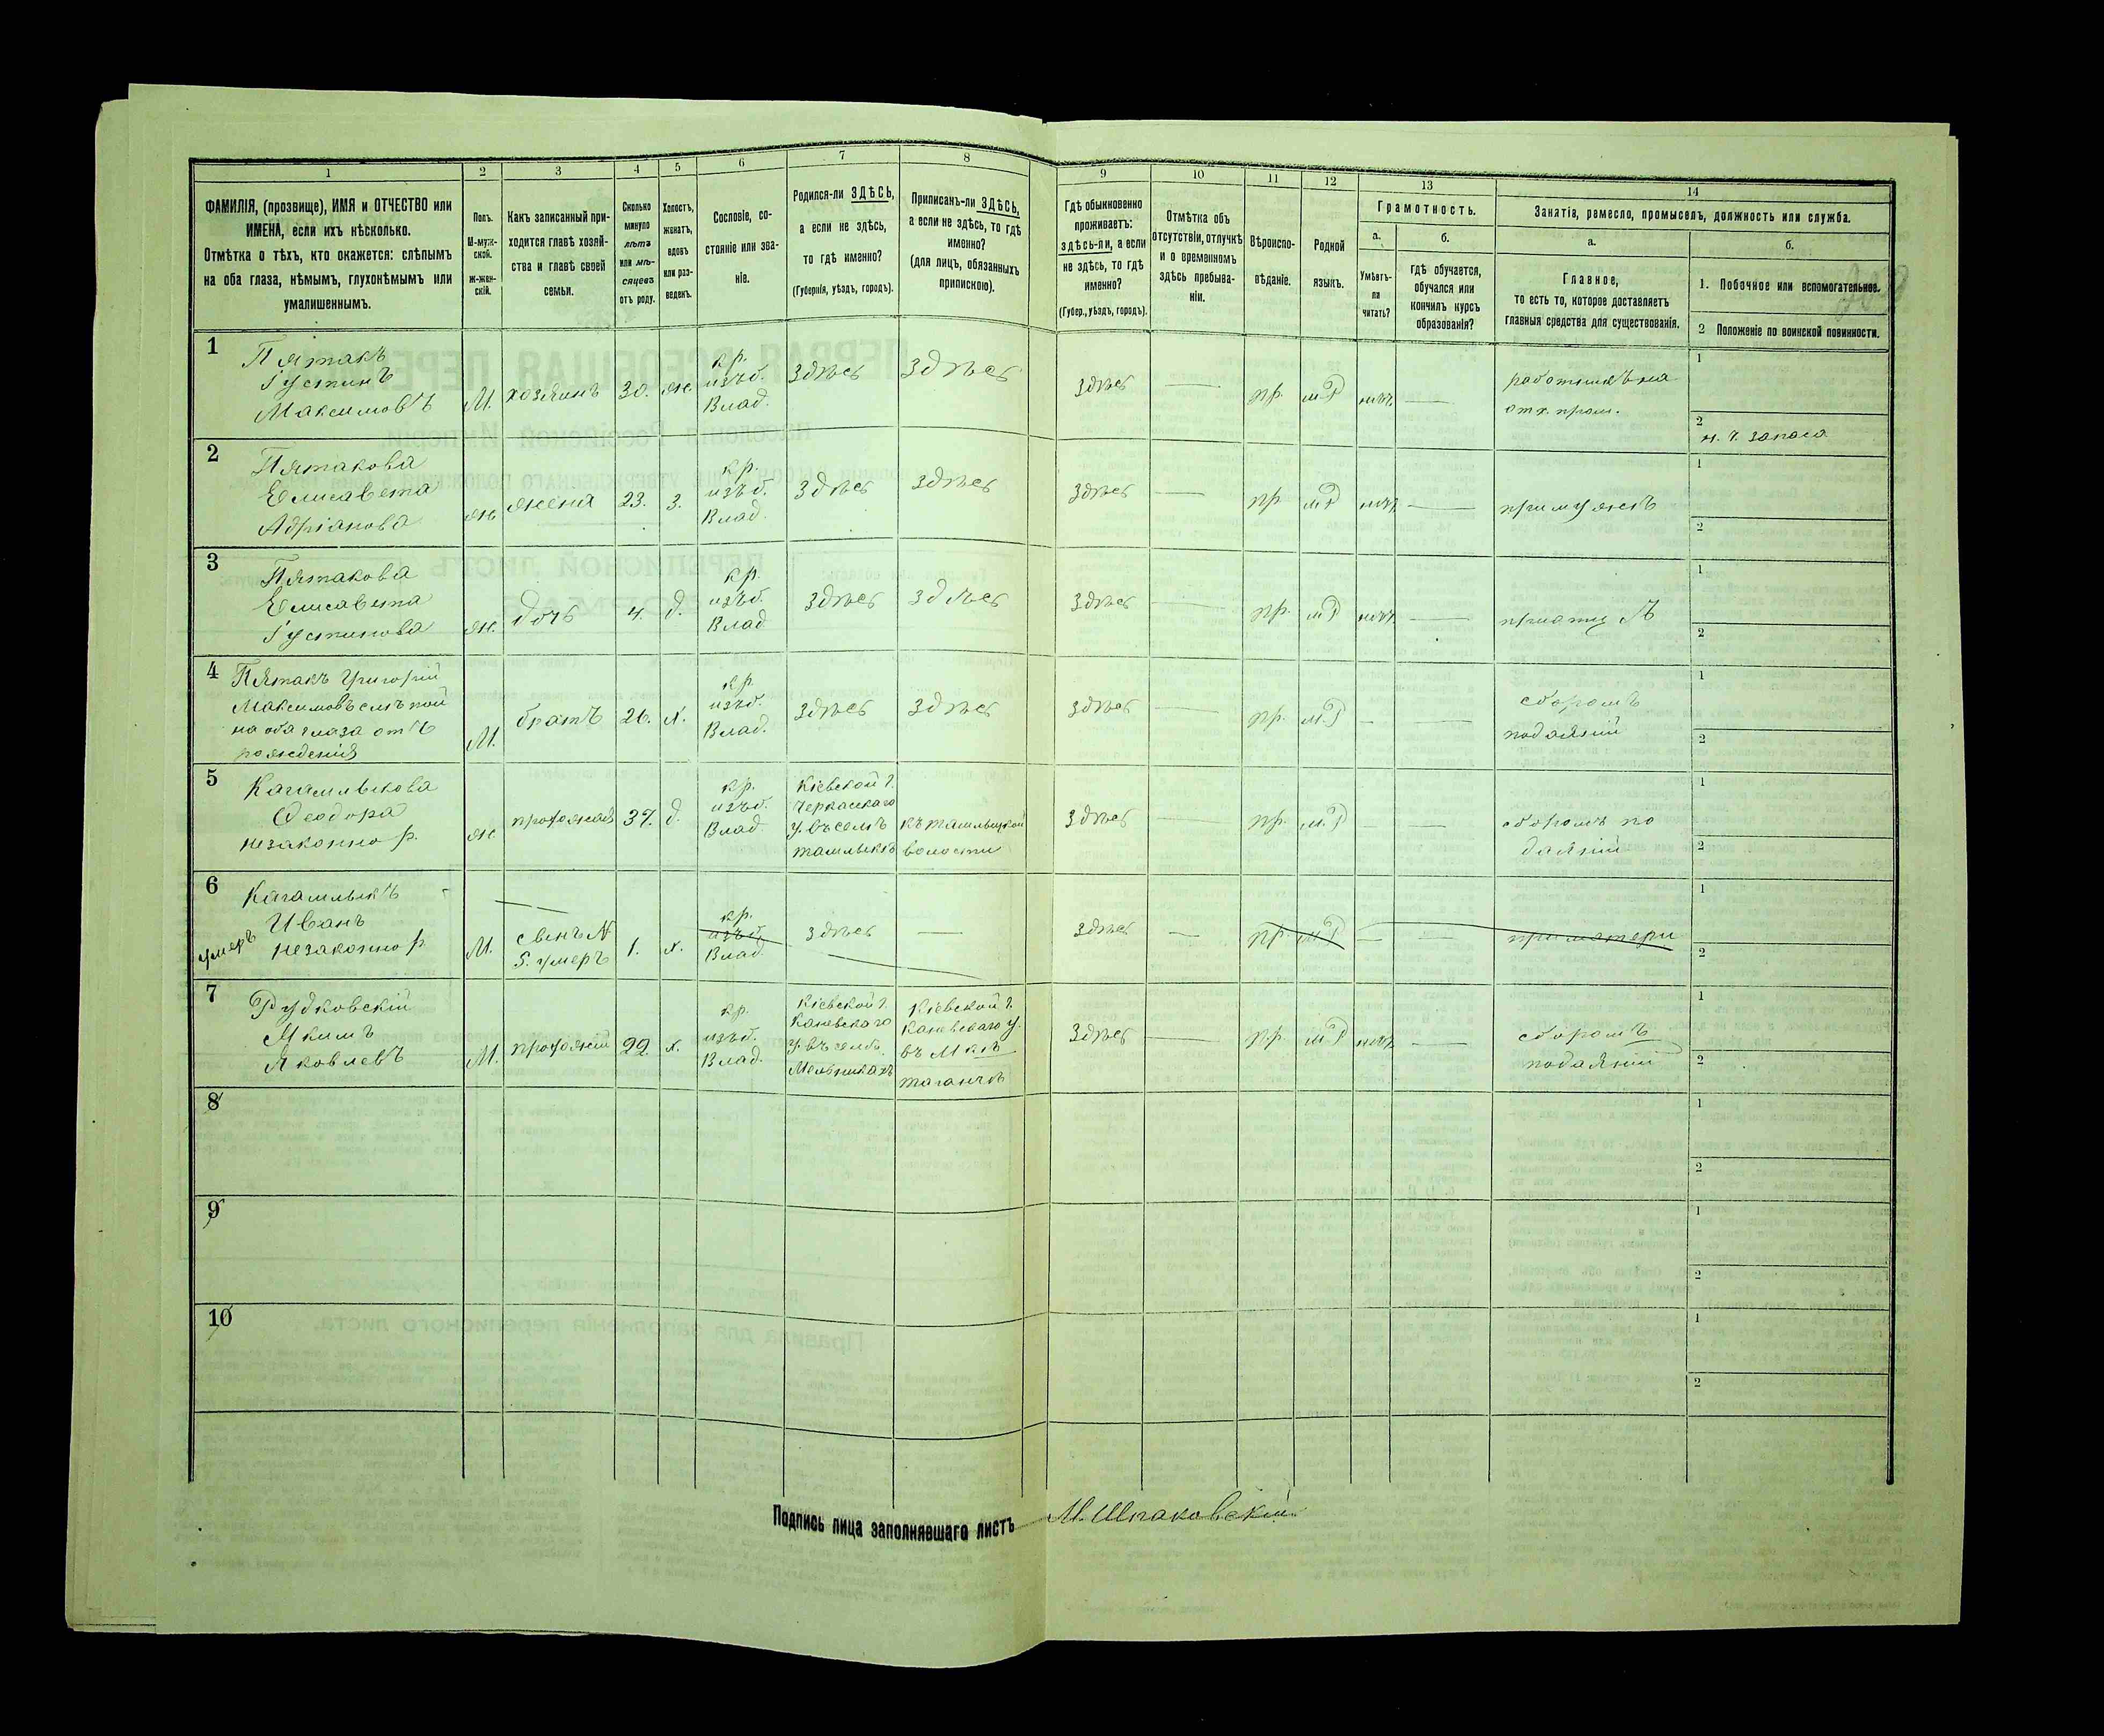 1 2 3 4 5 6 7 8 9 10 11 12 13 14
ФАМИЛІЯ, (прозвище), ИМЯ и ОТЧЕСТВО или
ИМЕНА, если ихъ нѣсколько.
Отмѣтка о тѣхъ, кто окажется: слѣпымъ
на оба глаза, нѣмымъ, глухонѣмымъ или
умалишеннымъ.
Полъ.
М-муж-
ской.
ж-жен-
скій.
Какъ записанный при-
ходится главѣ хозяй-
ства и главѣ своей
семьи.
Сколько
минуло
лѣтъ
или мѣ-
сяцевъ
отъ роду.
Холостъ,
женатъ,
вдовъ
или раз-
веденъ.
Сословіе, со-
стояніе или зва-
ніе.
Родился-ли ЗДѢСЬ,
а если не здѣсь,
то гдѣ именно?
(Губернія, уѣздъ, городъ).
Приписанъ-ли ЗДѢСЬ,
а если не здѣсь, то гдѣ
именно?
(для лицъ, обязанныхъ
припискою).
Гдѣ обыкновенно
проживаетъ:
здѣсь-ли, а если
не здѣсь, то гдѣ
именно?
(Губер., уѣздъ, городъ).
Отмѣтка объ
отсутствіи, отлучкѣ
и о временномъ
здѣсь пребыва-
ніи.
Вѣроиспо-
вѣданіе.
Родной
языкъ.
Грамотность.
а.
Умѣетъ-
ли
читать?
б.
гдѣ обучается,
обучался или
кончилъ курсъ
образованія?
Занятія, ремесло, промыселъ, должность или служба.
а.
Главное,
то есть то, которое доставляетъ
главныя средства для существованія.
б.
1. Побочное или вспомогательное.
2 Положеніе по воинской повинности.
1
Пятакъ
Густинъ
Максимовъ
М. хозяинъ 30. ж.
кр.
изъб.
Влад.
Здѣсь Здѣсь Здѣсь — пр. м.Р нѣтъ —
работникъ на
отх. пром.
1
2
н. ч. запаса
2
Пятакова
Елисавета
Адріанова
ж жена 23. З.
кр.
изъб.
Влад.
Здѣсь Здѣсь Здѣсь — пр м.Р нѣтъ —
при мужѣ
1
2
3
Пятакова
Елисавета
Густинова
ж. дочь 4. д.
кр.
изъб.
Влад
Здѣсь Здѣсь Здѣсь — пр. м.Р нѣтъ —
при отцѣ
1
2
4
Пятакъ Григорій
Максимовъ слѣпой
на оба глаза отъ
рожденія
М. братъ 26. х.
кр.
изъб.
Влад.
Здѣсь Здѣсь Здѣсь — пр. м.Р — —
сборомъ
подаяній
1
2
5
Кагамлыкова
Ѳеодора
незаконно р.
ж 37. д.
кр.
изъб.
Влад
Кіевской г.
Черкаскаго
у. въ селѣ
Ташлыкѣ
къ Ташлыцкой
волости
Здѣсь — пр. м.Р — —
сборомъ по
даяній
1
2
6
Кагамлыкъ
Иванъ
незаконно р
умеръ
М.
сынъ №
5. умеръ
1. х.
кр.
изъб.
Влад.
Здѣсь — Здѣсь — пр. м.Р — —
при матери
1
2
7
Рудковскій
Якимъ
Яковлевъ
М. 22. х.
кр.
изъб.
Влад.
Кіевской г.
Каневскаго
у. въ селѣ
Мельникахъ
Кіевской г.
Каневскаго у.
въ М
Таганчѣ
Здѣсь — пр. м.Р нѣтъ —
сборомъ
подаяній
1
2
8
1
2
9
1
2
10
1
2
Подпись лица заполнявшаго листъ М. Шпаковскій